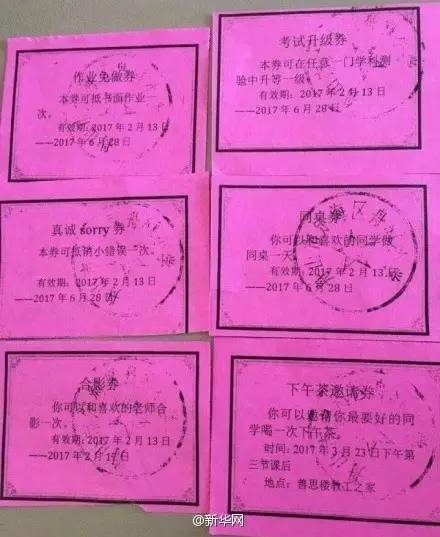 作业免做券
本券可抵书面作业一
次。
有效期：2017 年 2 月 13 日
——2017 年 6 月 28 日
考试升级券
本券可在任意一门学科测
验中升等一级。
有效期：2017 年 2 月 13
——2017 年 6 月 28 日
真诚 sorry 券
本券可抵消小错误一次。
有效期：2017 年 2 月 13 日
——2017 年 6 月 28 日
同桌券
你可以和喜欢的同学做
同桌一天。
有效期：2017 年 2 月 13 日
——2017 年 6 月 28 日
合影券
你可以和喜欢的老师合
影一次。
有效期：2017 年 2 月 13 日
——2017 年 2 月 17 日
下午茶邀请券
你可以邀请你最要好的同
学喝一次下午茶。
时间：2017 年 3 月 23 日下午第
三节课后
地点：善思楼教工之家
@新华网